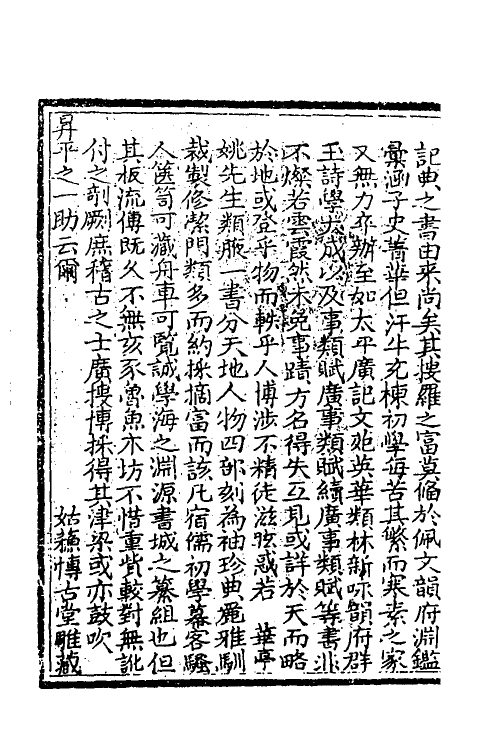 記典之書由来尚矣其搜羅之富莫俻於佩文韻府淵鑑
彙函子史菁華但汗牛充棟初學每苦其繁而寒素之家
又無力卒辦至如太平廣記文苑英華類林新咏韻府群
玉詩學大成以及事類賦廣事類賦續廣事類賦等書非
不燦若雲霞然未免事蹟方名得失互見或詳於天而略
於地或登乎物而軼乎人博涉不精徒滋眩惑若　華亭
姚先生類腋一書分天地人物四部刻為袖珍典麗雅馴
裁製修潔門類多而約採摘富而該凡宿儒初學幕客騷
人篋笥可藏舟車可覽誠學海之淵源書城之纂組也但
其板流傳既久不無亥豕魯魚木坊不惜重貲較對無訛
付之剞劂庶稽古之士廣搜博採得其津梁或亦鼓吹
昇平之一助云爾　姑蘇博古堂雕藏